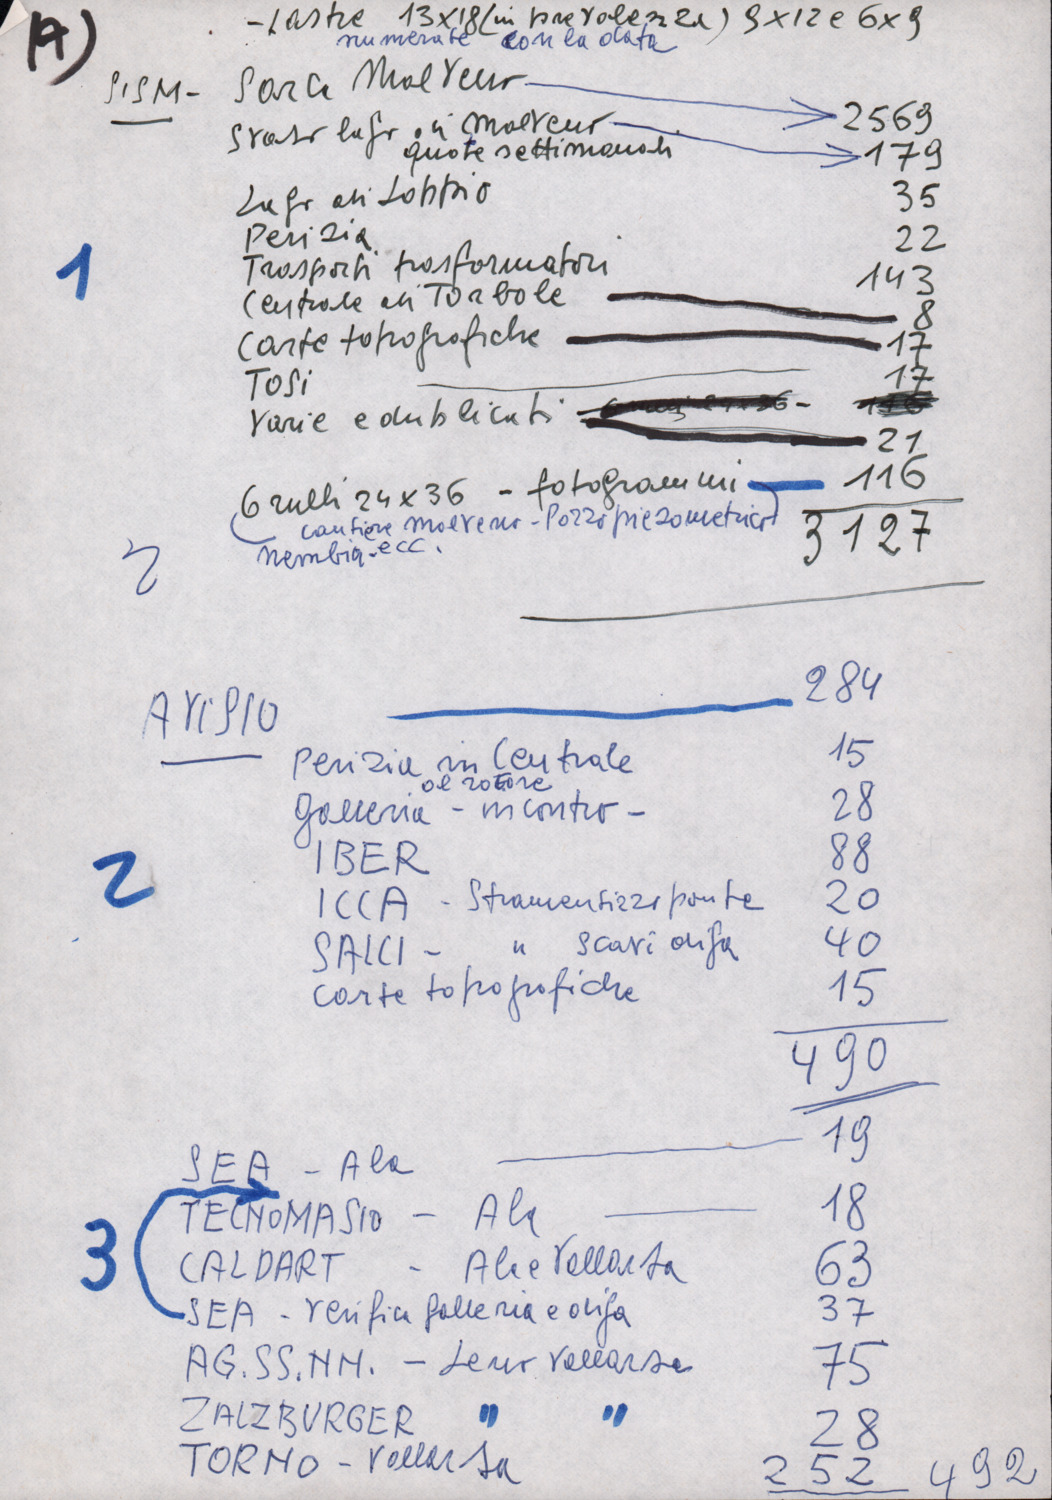 A)
- Lastre 13x18 (in prevalenza) 9x12 e 6x9
numerate con la data
SISM - Sarca Molveno 2569
Svaso lago di Molveno 179
quote settimanali
Lago di Loppio 35
Perizia 22
1
Trasporti trasformatori 143
Centrale di Torbole 8
Carte topografiche 17
TOSI 17
Varie e dublicati
21
6 rulli 24x36 - fotogrammi 116
cantiere Molveno - Pozzo piezometrico
Nembia - ecc.
3127
AVISIO 284
Perizia in Centrale 15
al rotore
galleria - incontro - 28
IBER 88
2
ICCA - ponte 20
SALCI - " scavi diga 40
Carte topografiche 15
490
SEA - Ala 19
TECNOMASIO - Ala 18
3
CALDART - Ala e Vallarsa 63
SEA - Verifica galleria e diga 37
AG.SS.NN. - Leno Vallarsa 75
ZALZBURGER " " 28
TORNO - Vallarsa 252 492